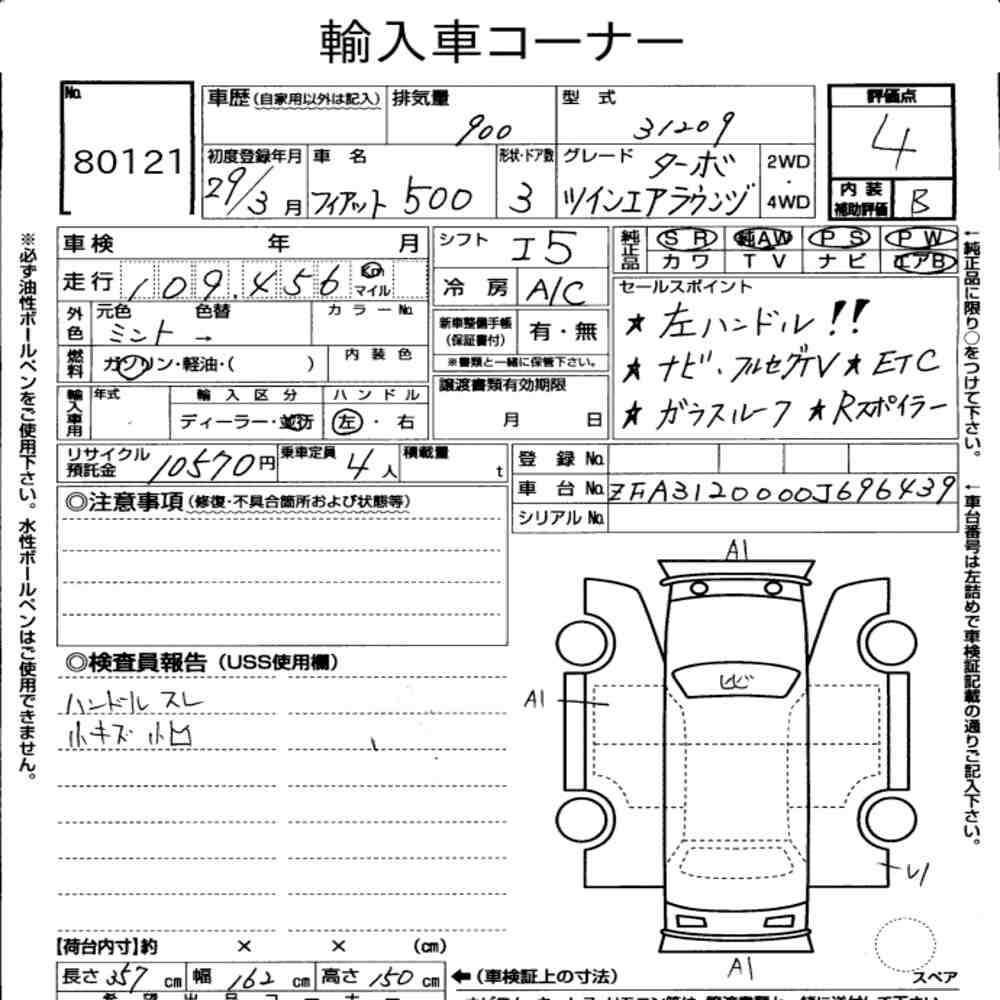 輸入車コーナー
No. 80121
車歴(自家用以外は記入) 排気量 900 型式 31209
評価点 4
初度登録年月 29/3月 車名 フィアット500 形状・ドア数 3 グレード ターボ ツインエアラウンジ 2WD・4WD
内装補助評価 B
車検 年 月 シフト I5 純正品 SR 純AW PS PW
カワ TV ナビ エアB
走行 109,456 Km マイル 冷房 A/C
外色 元色 ミント → 色替 カラーNo.
新車整備手帳(保証書付) 有・無
※書類と一緒に保管下さい。
燃料 ガソリン・軽油・( ) 内装色
譲渡書類有効期限 月 日
輸入車用 年式 輸入区分 ディーラー・並行 ハンドル 左・右
セールスポイント
★左ハンドル!!
★ナビ・フルセグTV★ETC
★ガラスルーフ ★Rスポイラー
リサイクル預託金 10570円 乗車定員 4人 積載量 t
登録No.
車台No. ZFA3120000J696439
シリアルNo.
◎注意事項(修復・不具合箇所および状態等)
◎検査員報告(USS使用欄)
ハンドルスレ
小キズ 小凹
A1
ヒビ
A1
A1
スペア
【荷台内寸】約 × × (cm)
長さ357cm 幅162cm 高さ150cm ←(車検証上の寸法)
※必ず油性ボールペンをご使用下さい。水性ボールペンはご使用できません。
←純正品に限り○をつけて下さい。
←車台番号は左詰めで車検証記載の通りご記入下さい。